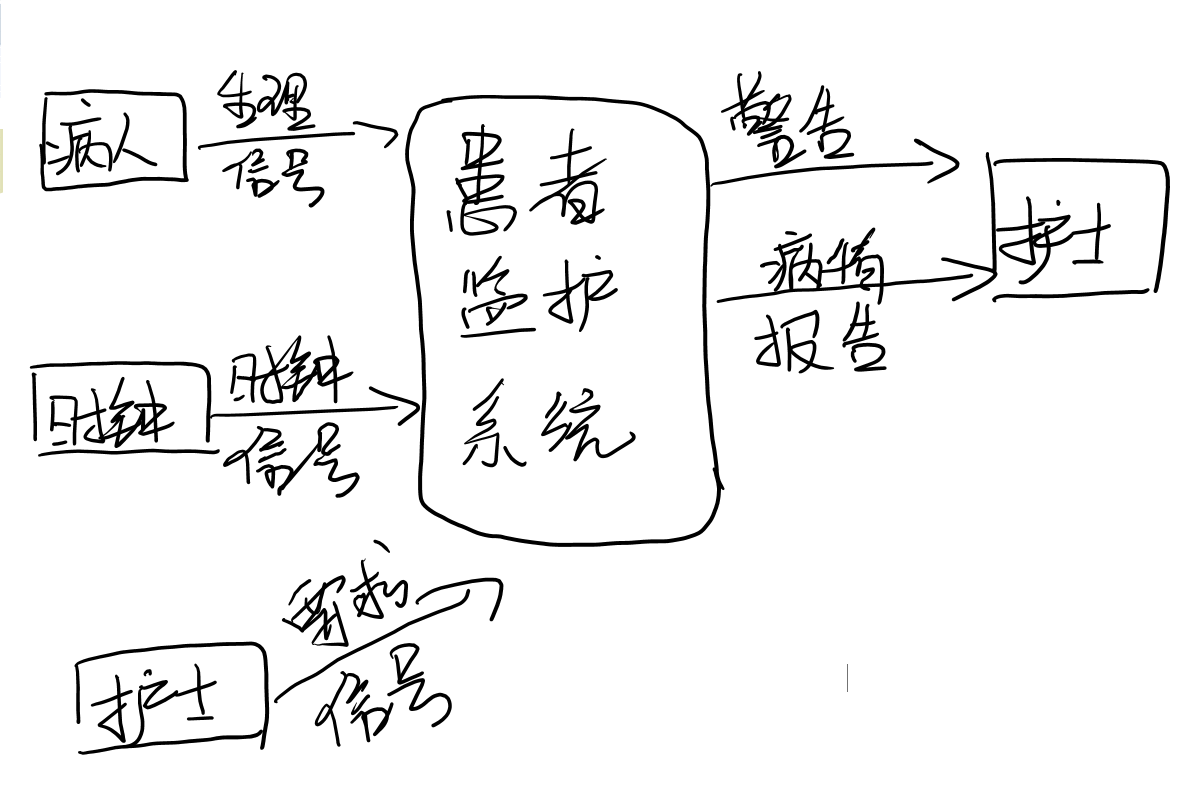 病人
生理
信号
时钟
时钟
信号
护士
需求
信号
患者
监护
系统
警告
病情
报告
护士